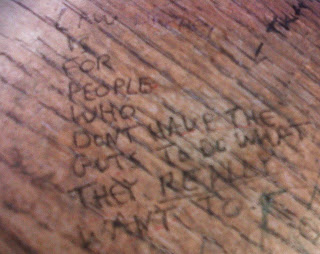 LAW
IS
FOR
PEOPLE
WHO
DON'T HAVE THE
GUTS TO DO WHAT
THEY REALLY
WANT TO